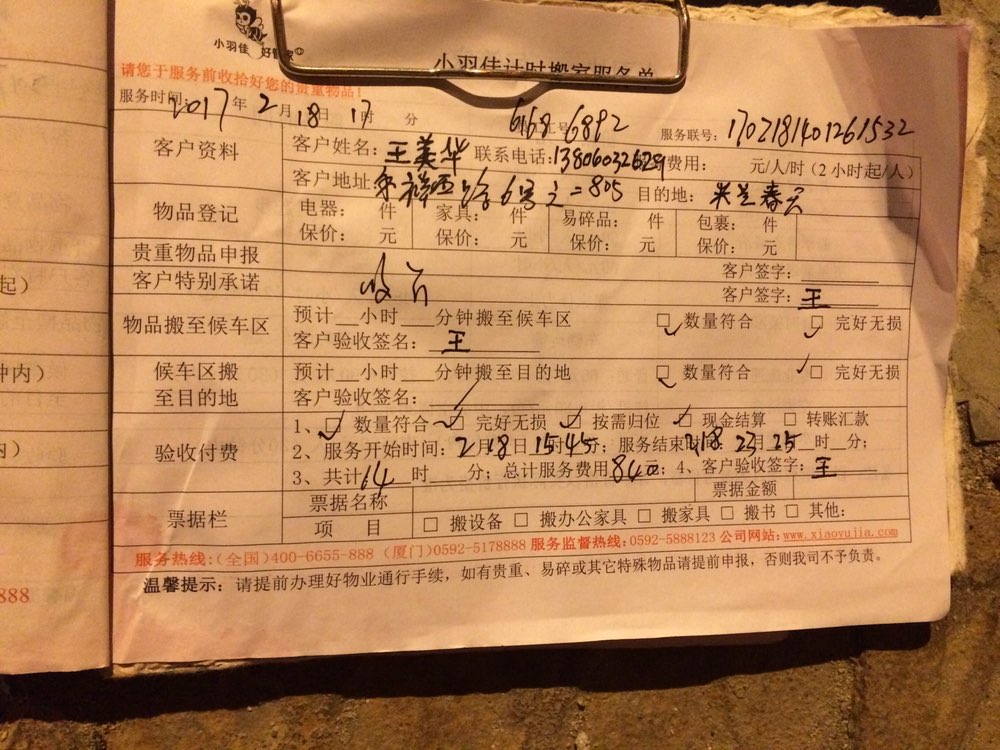 小羽佳 好管家
小羽佳计时搬家服务单
请您于服务前收拾好您的贵重物品!
服务时间: 2017年2月18日17时 分 6168 6892 工号 服务联号: 1702181401261532
客户资料 客户姓名: 王美华 联系电话: 13806032629 费用: 元/人/时(2小时起/人)
客户地址 祥西路6号之二805 目的地: 米兰春天
物品登记 电器: 件 家具: 件 易碎品: 件 包裹: 件
保价: 元 保价: 元 保价: 元 保价: 元
贵重物品申报 客户签字:
客户特别承诺 客户签字: 王
物品搬至候车区 预计__小时__分钟搬至候车区 ☑ 数量符合 ☑ 完好无损
客户验收签名: 王
候车区搬至目的地 预计__小时__分钟搬至目的地 ☑ 数量符合 ☑ 完好无损
客户验收签名:
验收付费 1、☑ 数量符合 ☑ 完好无损 ☑ 按需归位 ☑ 现金结算 □ 转账汇款
2、服务开始时间: 2月18日15时45分; 服务结束时间: 2.18 23 25 时__分;
3、共计64时__分; 总计服务费用84元; 4、客户验收签字: 王
票据栏 票据名称 票据金额
项 目 □ 搬设备 □ 搬办公家具 □ 搬家具 □ 搬书 □ 其他:
服务热线:(全国)400-6655-888 (厦门)0592-5178888 服务监督热线:0592-5888123 公司网站:www.xiaoyujia.com
温馨提示: 请提前办理好物业通行手续,如有贵重、易碎或其它特殊物品请提前申报,否则我司不予负责。
起)
钟内)
内)
888